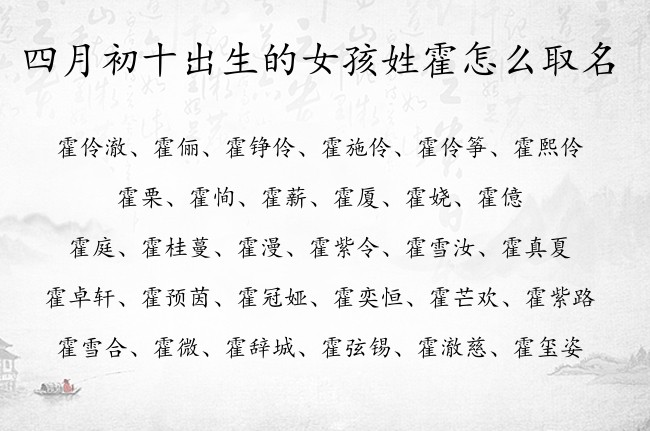 四月初十出生的女孩姓霍怎么取名
霍伶澈、霍俪、霍铮伶、霍施伶、霍伶筝、霍熙伶
霍栗、霍恂、霍薪、霍厦、霍娆、霍億
霍庭、霍桂蔓、霍漫、霍紫令、霍雪汝、霍真夏
霍卓轩、霍预茵、霍冠娅、霍奕恒、霍芒欢、霍紫路
霍雪合、霍微、霍辞城、霍弦锡、霍澈慈、霍玺姿